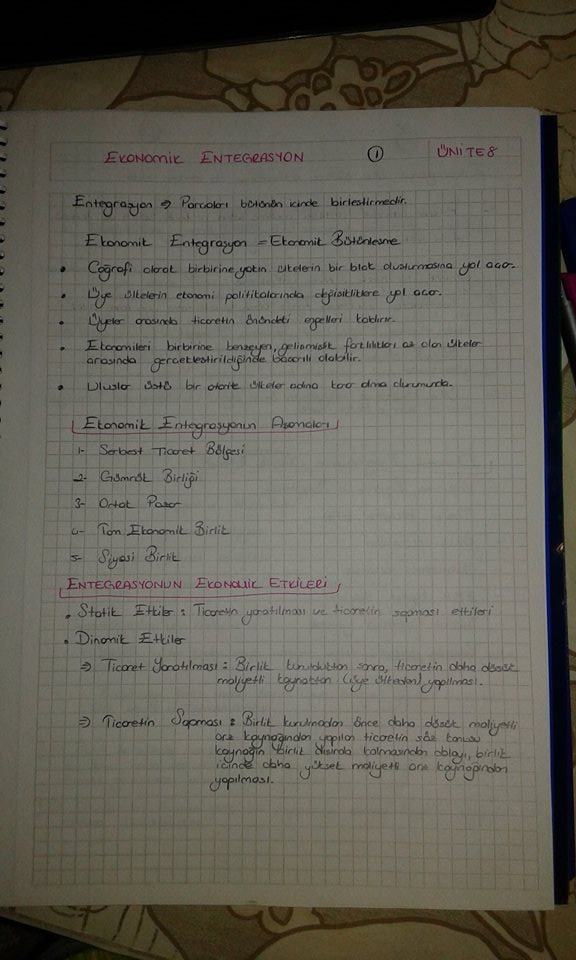 EKONOMİK ENTEGRASYON ① ÜNİTE 8
Entegrasyon ⇒ Parçaları bütünün içinde birleştirmedir.
Ekonomik Entegrasyon = Ekonomik Bütünleşme
• Coğrafi olarak birbirine yakın ülkelerin bir blok oluşturmasına yol açar.
• Üye ülkelerin ekonomi politikalarında değişikliklere yol açar.
• Üyeler arasında ticaretin önündeki engelleri kaldırır.
• Ekonomileri birbirine benzeyen, gelişmişlik farklılıkları az olan ülkeler
arasında gerçekleştirildiğinde başarılı olabilir.
• Uluslar üstü bir otorite ülkeler adına karar alma durumunda.
Ekonomik Entegrasyonun Aşamaları
1- Serbest Ticaret Bölgesi
2- Gümrük Birliği
3- Ortak Pazar
4- Tam Ekonomik Birlik
5- Siyasi Birlik
ENTEGRASYONUN EKONOMİK ETKİLERİ
• Statik Etkiler : Ticaretin yaratılması ve ticaretin sapması etkileri
• Dinamik Etkiler
⇒ Ticaret Yaratılması : Birlik kurulduktan sonra, ticaretin daha düşük
maliyetli kaynaktan (üye ülkeden) yapılması.
⇒ Ticaretin Sapması : Birlik kurulmadan önce daha düşük maliyetli
arz kaynağından yapılan ticaretin söz konusu
kaynağın birlik dışında kalmasından dolayı, birlik
içinde daha yüksek maliyetli arz kaynağından
yapılması.